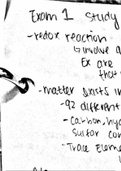 Exam 1 study
- redox reaction
↳ involve
Ex are
that
- matter exists in
- 92 different
- Carbon, hyd
Sulfur con
- Trace Eleme